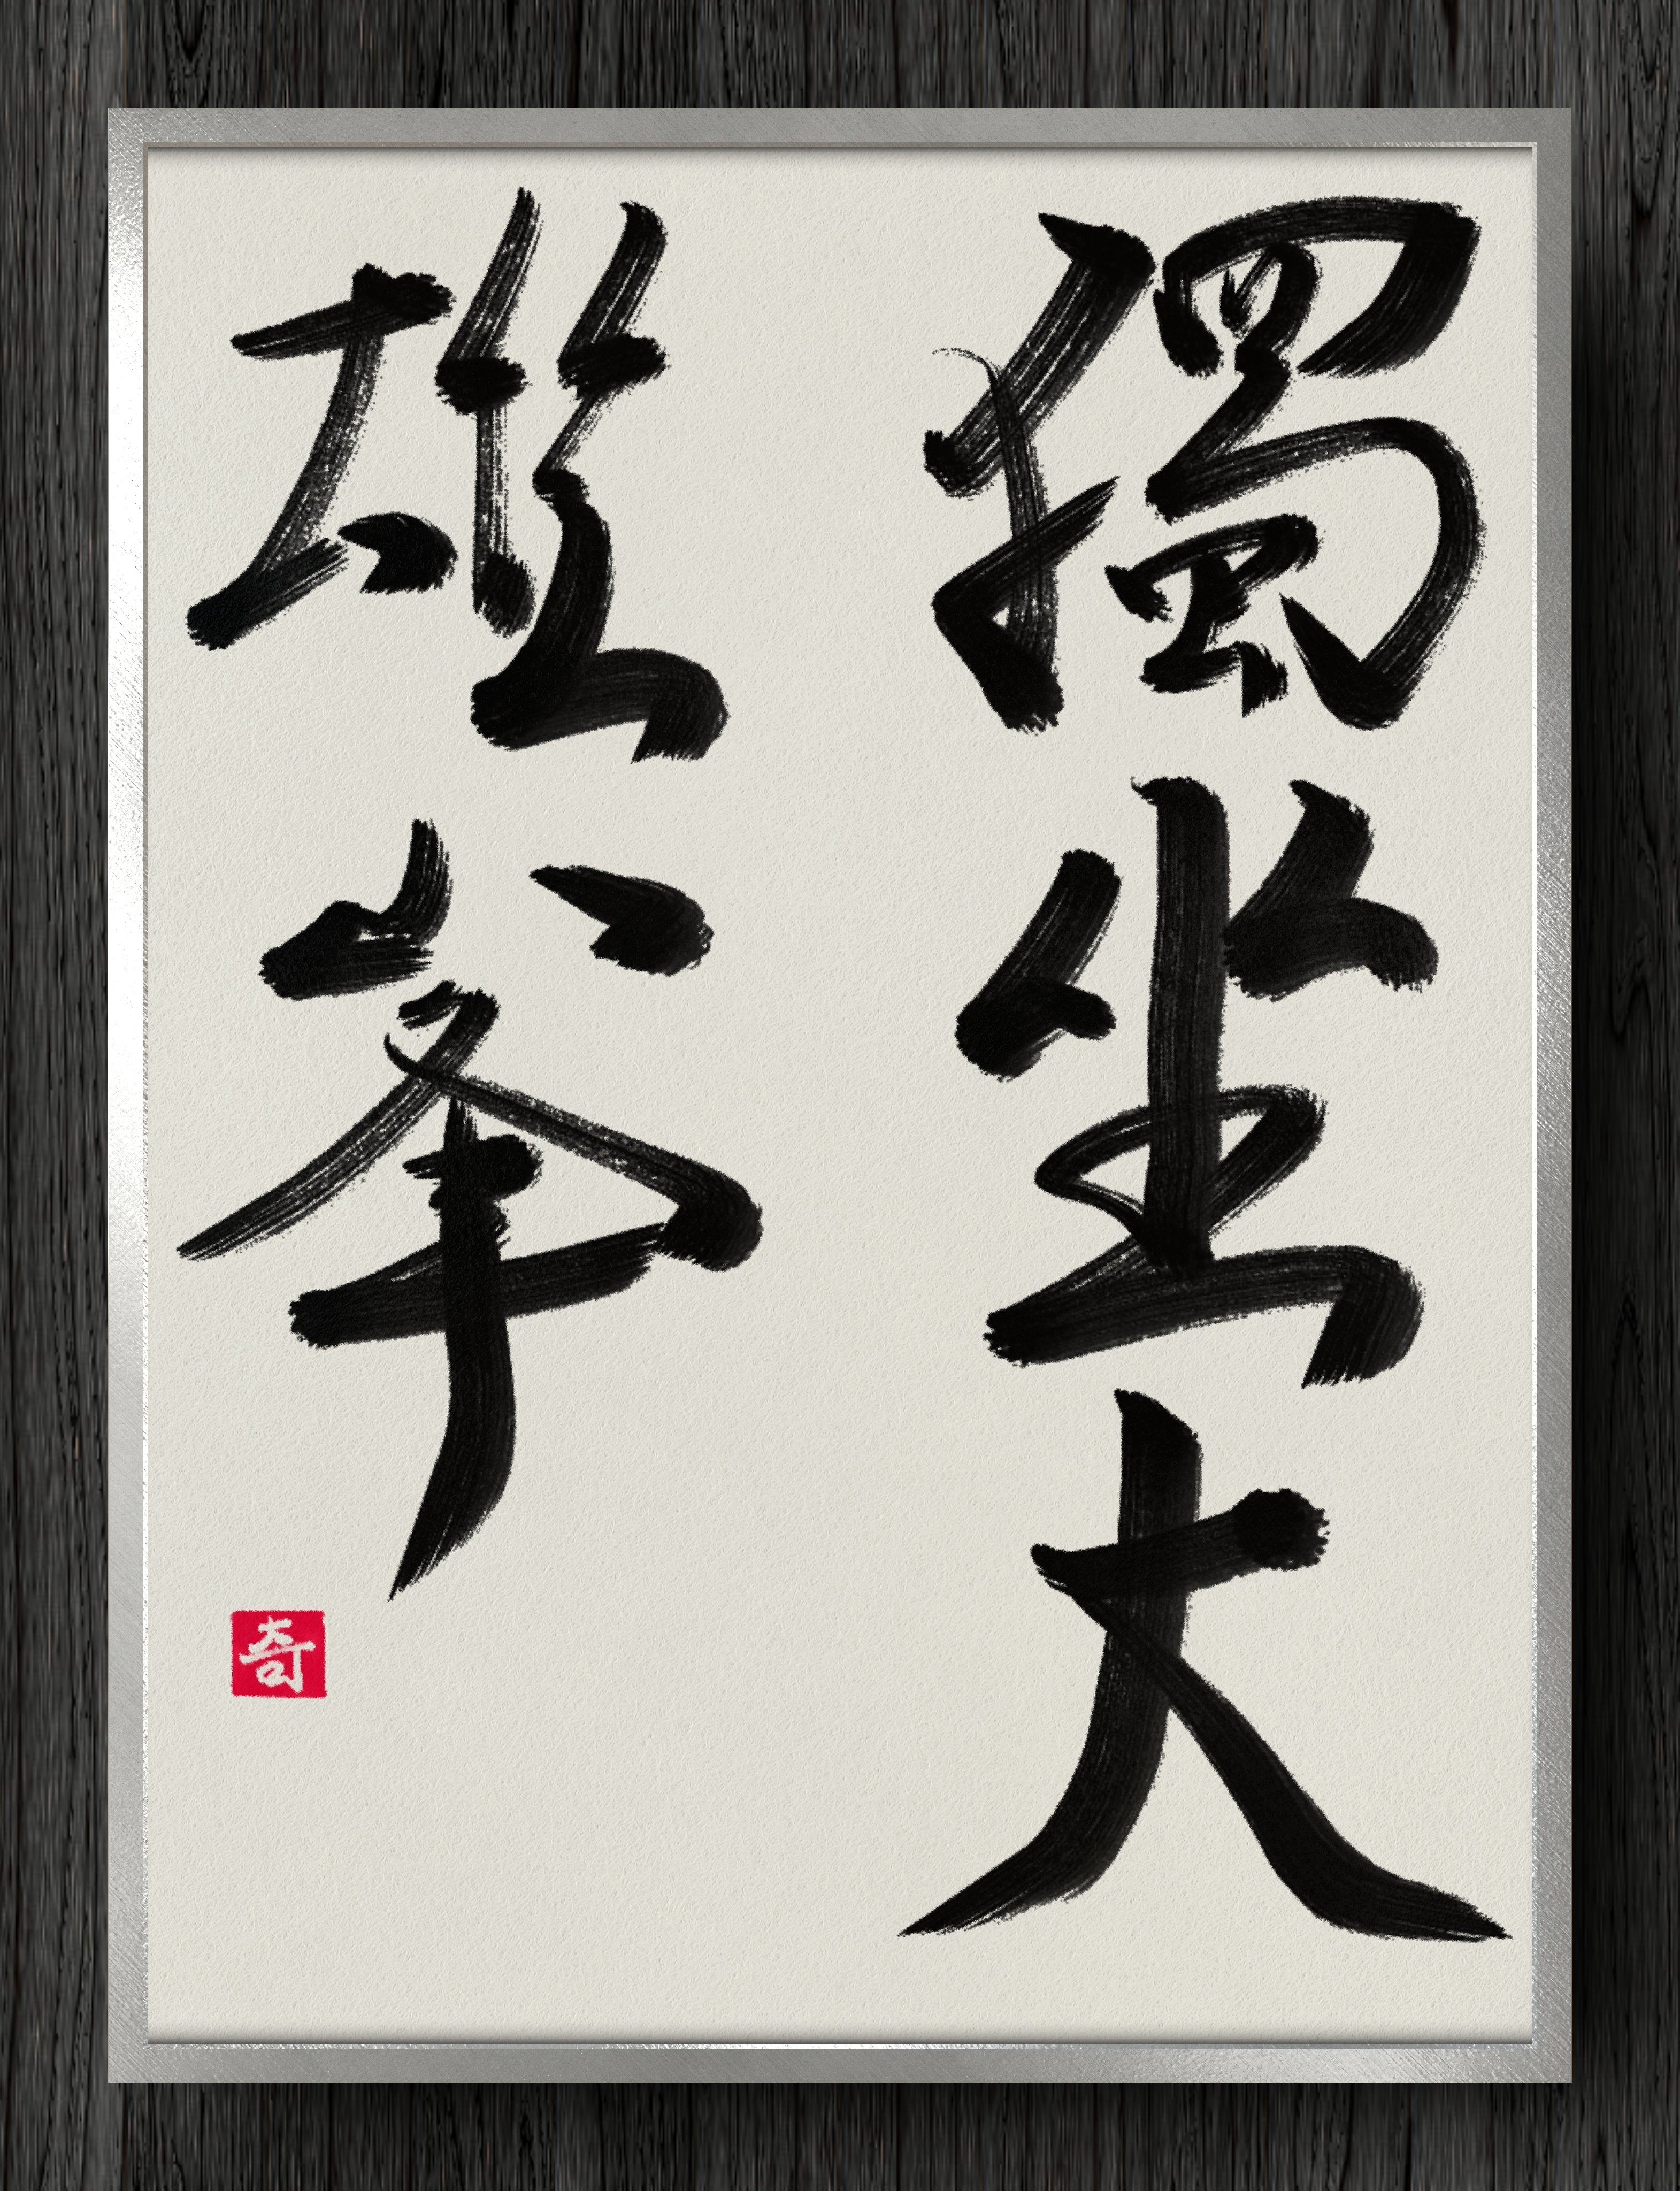 獨坐大
雄峯
奇